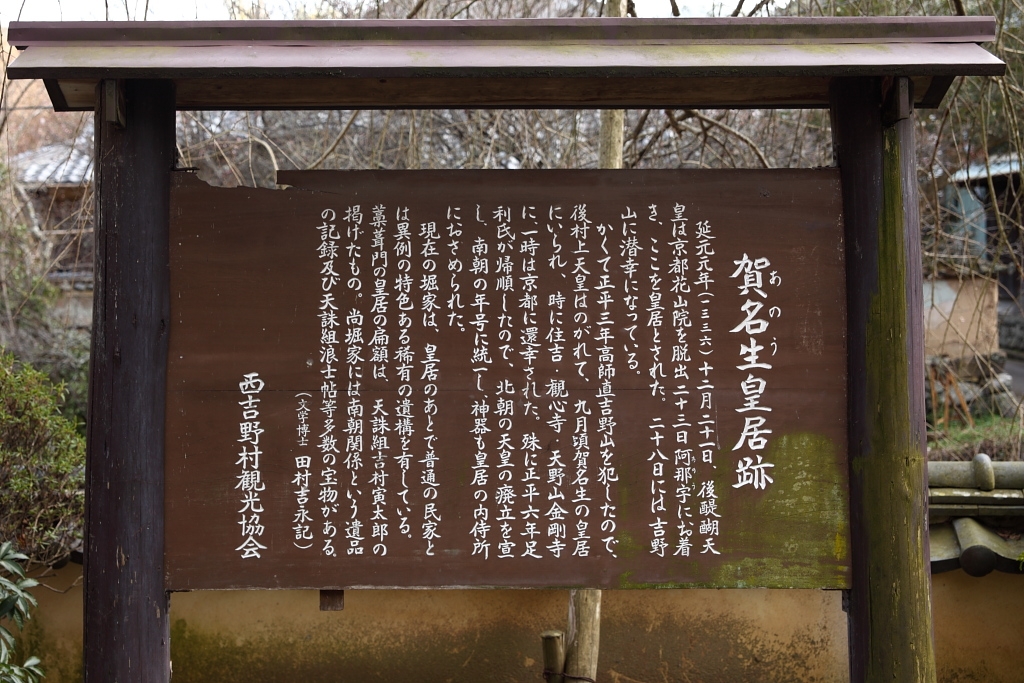 賀名生皇居跡
あのう
延元元年(一三三六)十二月二十一日、後醍醐天
皇は京都花山院を脱出二十三日阿那宇にお着
き、ここを皇居とされた。二十八日には吉野
山に潜幸になっている。
かくて正平三年高師直吉野山を犯したので、
後村上天皇はのがれて、九月頃賀名生の皇居
にいられ、時に住吉・観心寺・天野山金剛寺
に一時は京都に還幸された。殊に正平六年足
利氏が帰順したので、北朝の天皇の廃立を宣
し、南朝の年号に統一し、神器も皇居の内侍所
におさめられた。
現在の堀家は、皇居のあとで普通の民家と
は異例の特色ある稀有の遺構を有している。
藁葺門の皇居の扁額は、天誅組吉村寅太郎の
掲げたもの。尚堀家には南朝関係という遺品
の記録及び天誅組浪士帖等多数の宝物がある。
(文学博士 田村吉永記)
西吉野村観光協会